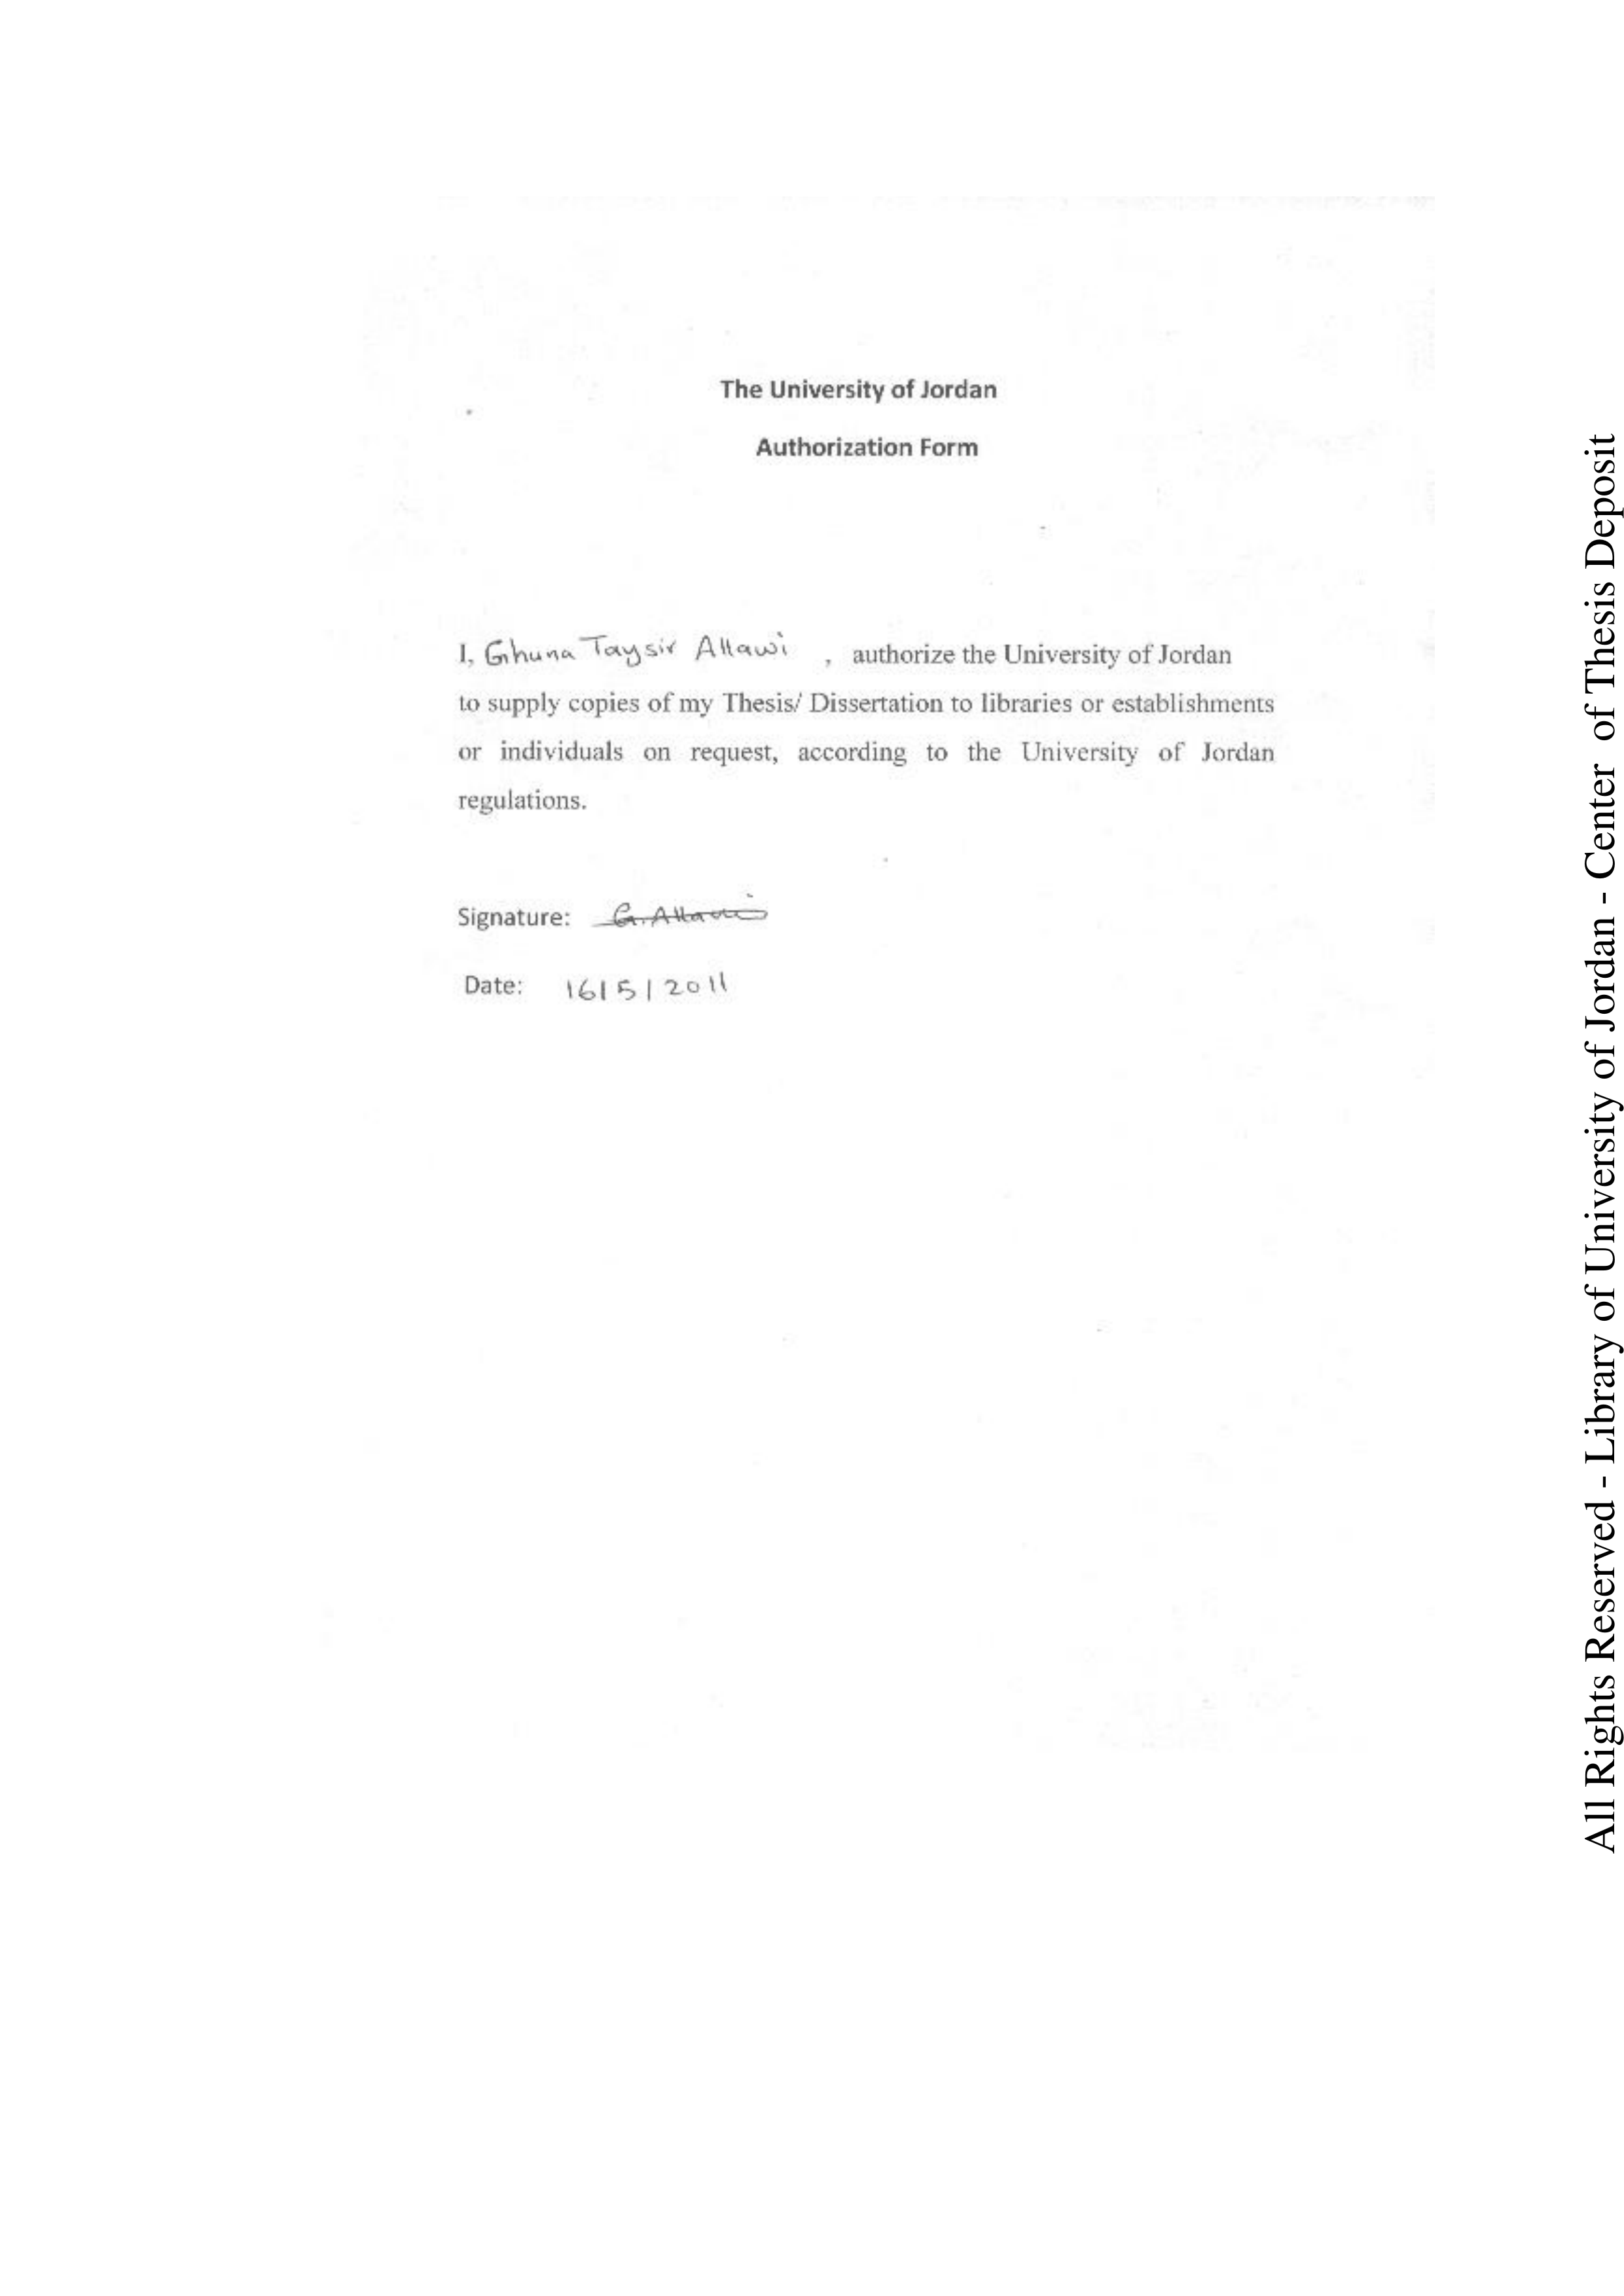 The University of Jordan
Authorization Form
I, Ghuna Taysir Allawi , authorize the University of Jordan
to supply copies of my Thesis/ Dissertation to libraries or establishments
or individuals on request, according to the University of Jordan
regulations.
Signature: G. Allawi
Date: 16/5/2011
All Rights Reserved - Library of University of Jordan - Center of Thesis Deposit